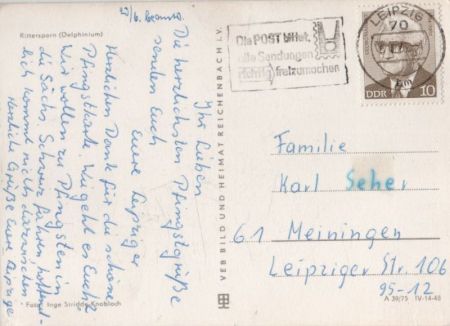 Rittersporn (Delphinium)
27/6. beantw.
Ihr Lieben
Die herzlichsten Pfingstgrüße
senden Euch
Eure Leipziger
Herzlichen Dank für die schöne
Pfingstkarte. Wie geht es Euch?
Wir wollen zu Pfingsten in
die Sächs. Schweiz fahren, hoffent-
lich kommt nichts dazwischen
Herzliche Grüße Eure Leipziger
Foto: Inge Stridde-Knobloch
VEB BILD UND HEIMAT REICHENBACH I. V.
Die POST bittet,
alle Sendungen
richtig freizumachen
LEIPZIG
70
DDR 10
Familie
Karl Seher
61 Meiningen
Leipziger Str. 106
95-12
A 39/75 IV-14-48